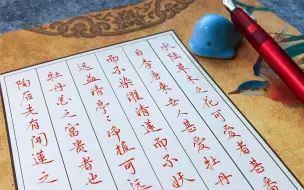 水陆草木之花可爱者甚蕃
自李唐来世人甚爱牡丹
而不染濯清涟而不妖
远益清亭亭净植可远
牡丹花之富贵者也
陶后鲜有闻莲之